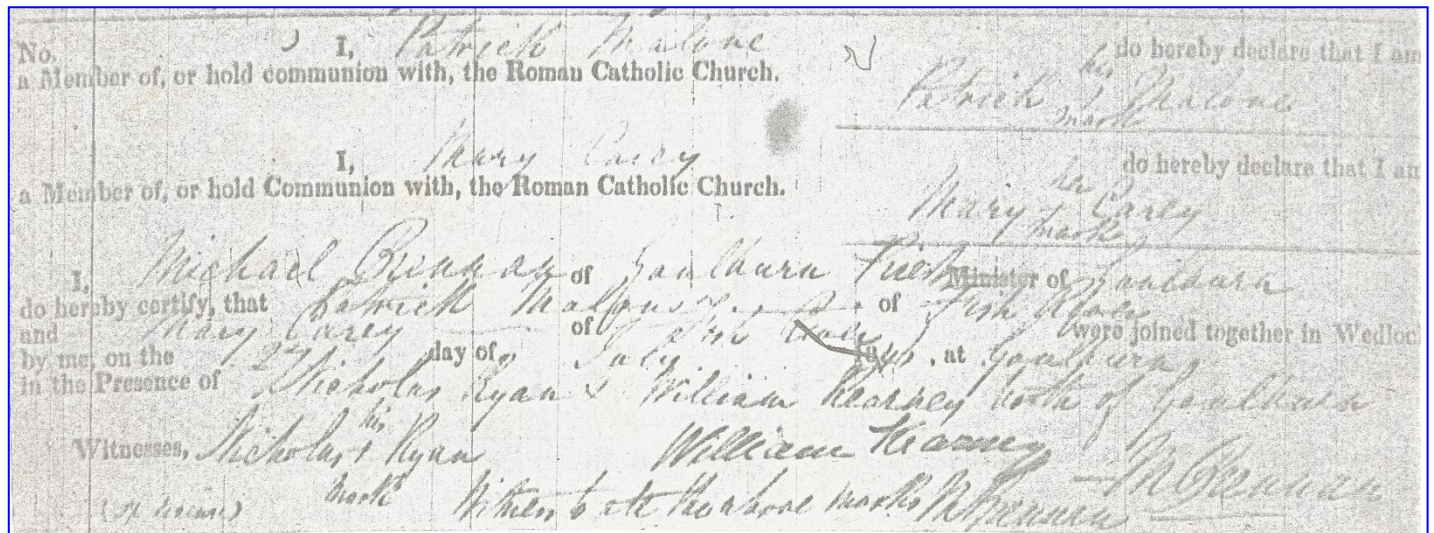 No. I, Patrick Malone do hereby declare that I am
a Member of, or hold communion with, the Roman Catholic Church.
his
Patrick Malone
mark
I, Mary Carey do hereby declare that I am
a Member of, or hold Communion with, the Roman Catholic Church.
her
Mary Carey
mark
I, Michael Brennan of Goulburn Priest Minister of Goulburn
do hereby certify, that Patrick Malone of Fish River
and Mary Carey of Fish River were joined together in Wedloc
by me, on the 2nd day of July 18 , at Goulburn
in the Presence of Nicholas Ryan & William Kearney both of Goulburn
his
Witnesses, Nicholas Ryan William Kearney
mark M Brennan
Witness to all the above marks M Brennan